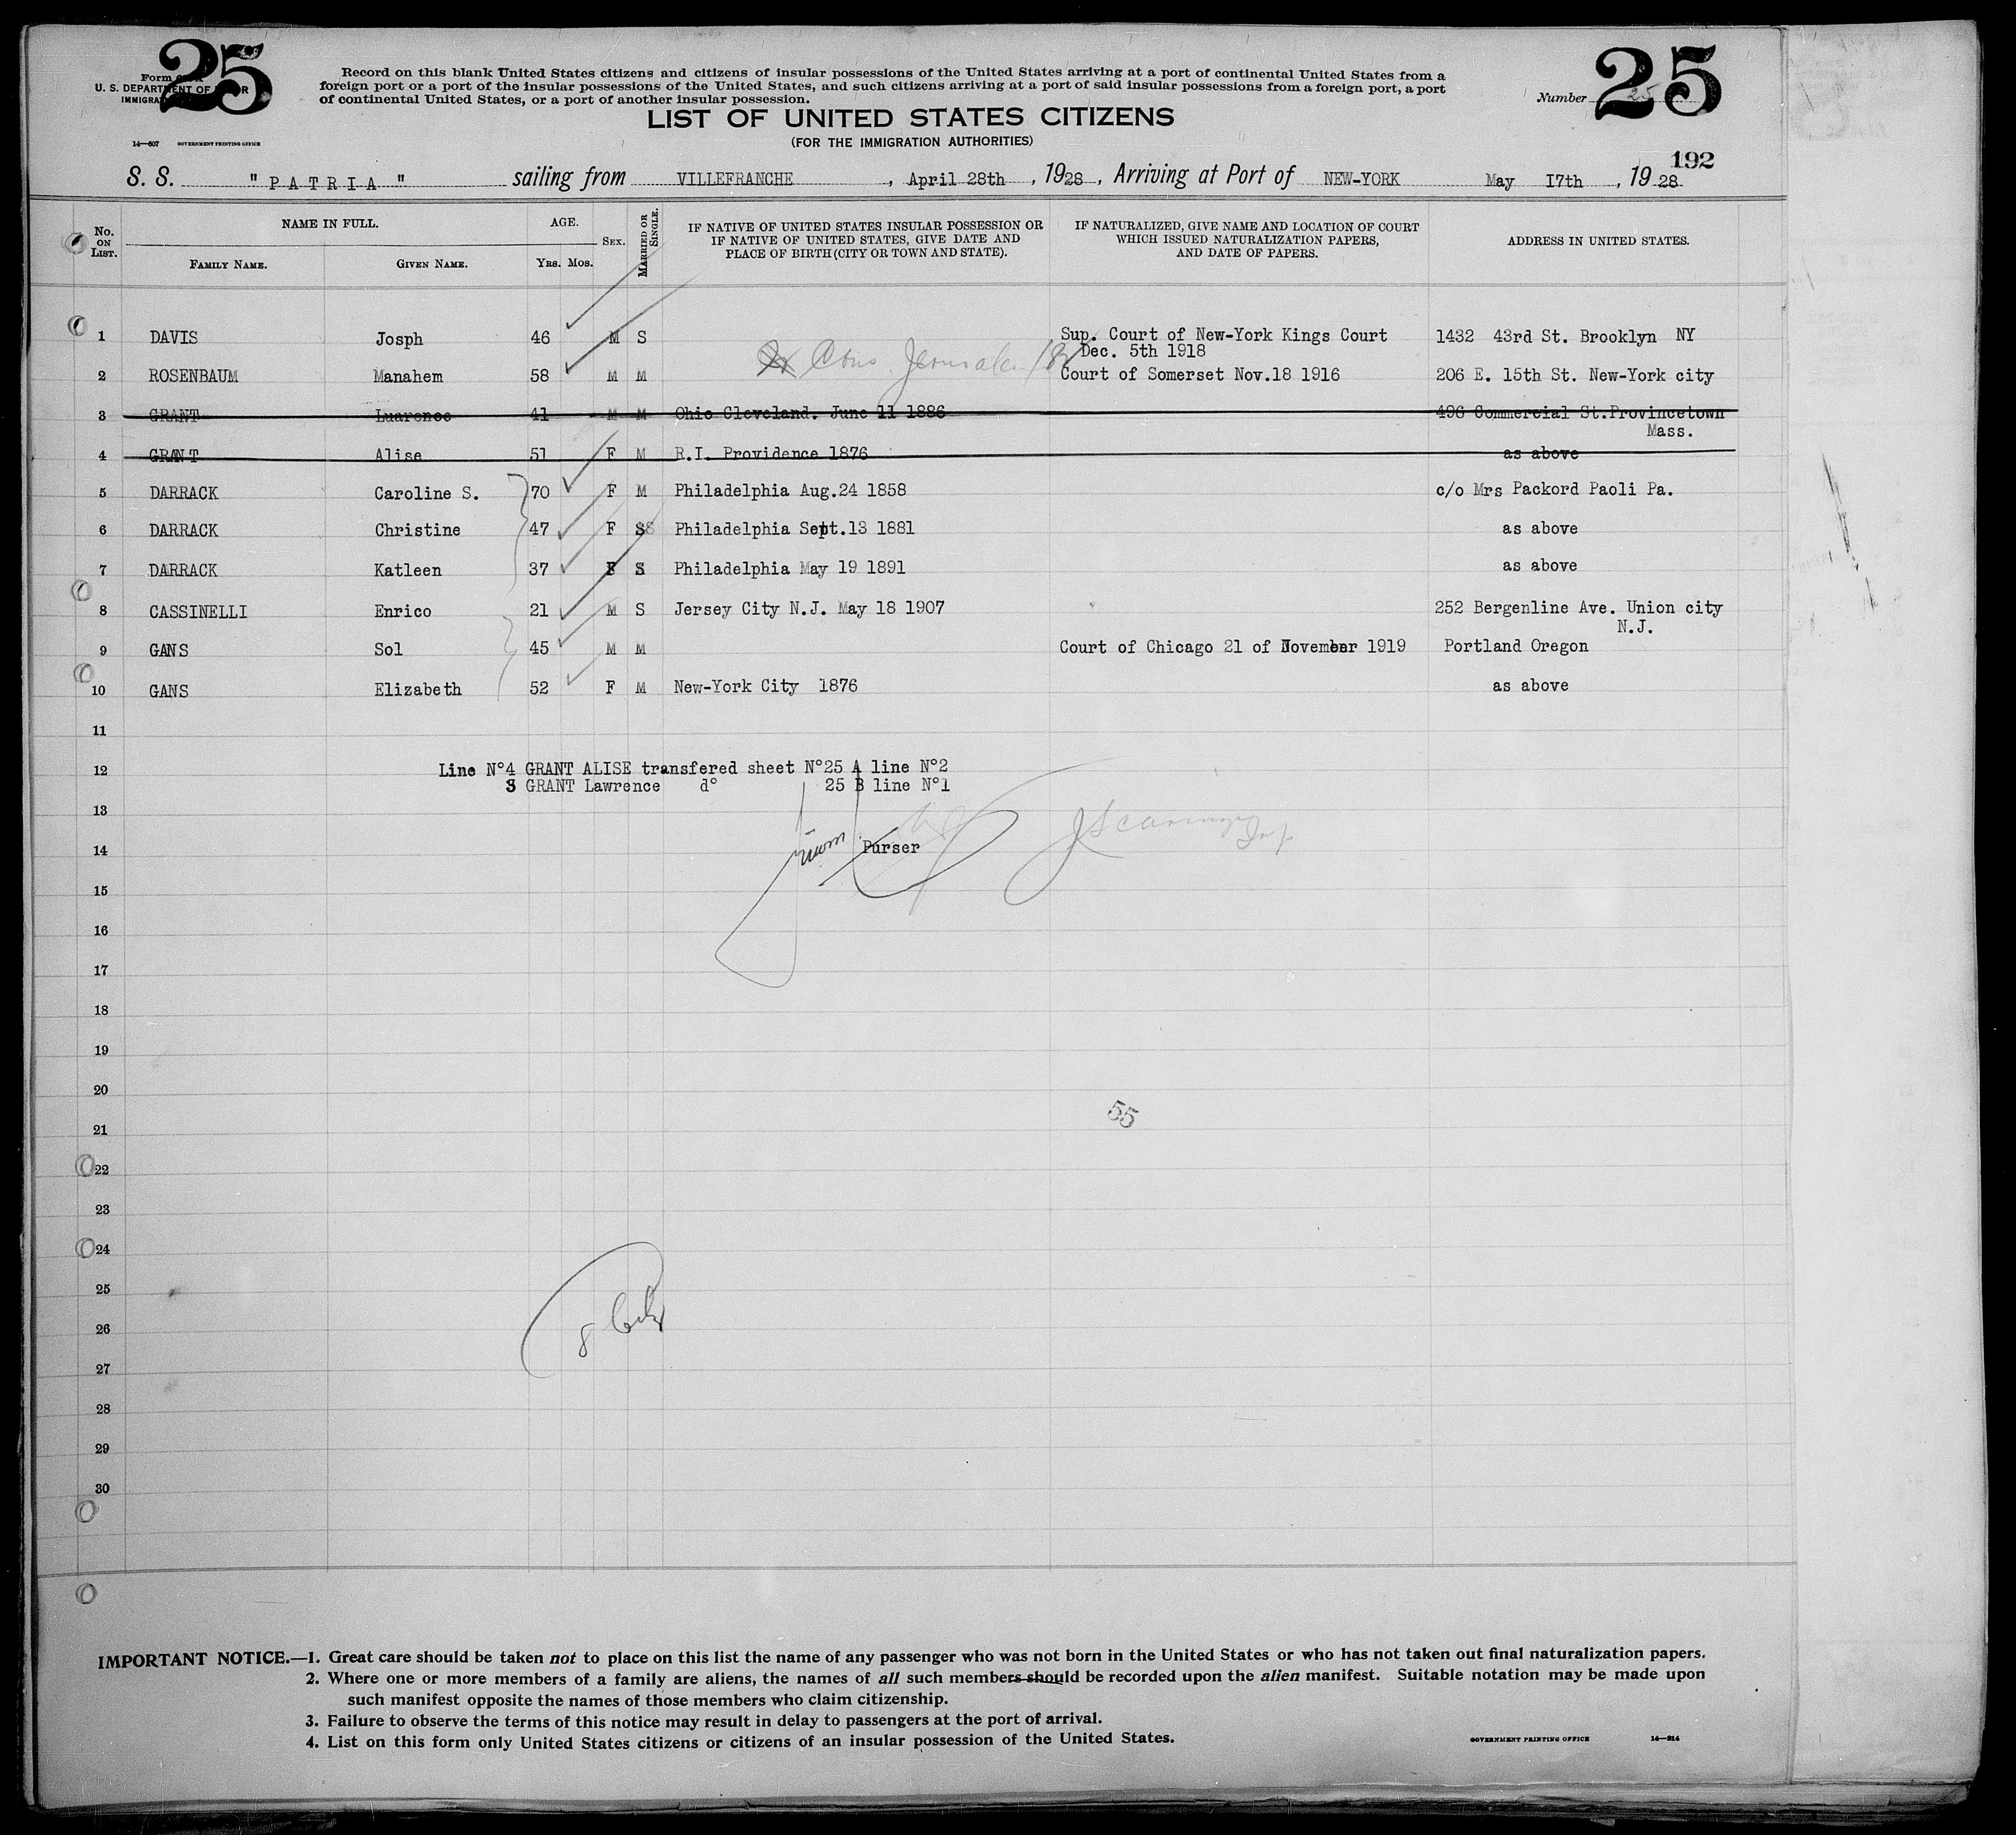 25
25
Form
U. S. DEPARTMENT OF LABOR
IMMIGRATION
14—607 GOVERNMENT PRINTING OFFICE
Record on this blank United States citizens and citizens of insular possessions of the United States arriving at a port of continental United States from a
foreign port or a port of the insular possessions of the United States, and such citizens arriving at a port of said insular possessions from a foreign port, a port
of continental United States, or a port of another insular possession.
Number 25
LIST OF UNITED STATES CITIZENS
(FOR THE IMMIGRATION AUTHORITIES)
192
S. S. "PATRIA" sailing from VILLEFRANCHE, April 28th, 1928, Arriving at Port of NEW-YORK May 17th, 1928
No. ON LIST. NAME IN FULL. FAMILY NAME. GIVEN NAME. AGE. YRS. MOS. SEX. MARRIED OR SINGLE. IF NATIVE OF UNITED STATES INSULAR POSSESSION OR IF NATIVE OF UNITED STATES, GIVE DATE AND PLACE OF BIRTH (CITY OR TOWN AND STATE). IF NATURALIZED, GIVE NAME AND LOCATION OF COURT WHICH ISSUED NATURALIZATION PAPERS, AND DATE OF PAPERS. ADDRESS IN UNITED STATES.
1 DAVIS Josph 46 M S Sup. Court of New-York Kings Court 1432 43rd St. Brooklyn NY
Dec. 5th 1918
Cons. Jerusalem
2 ROSENBAUM Manahem 58 M M Court of Somerset Nov.18 1916 206 E. 15th St. New-York city
3 GRANT Luarence 41 M M Ohio Cleveland. June 11 1886 496 Commercial St.Provincetown
Mass.
4 GRANT Alise 51 F M R.I. Providence 1876 as above
5 DARRACK Caroline S. 70 F M Philadelphia Aug.24 1858 c/o Mrs Packord Paoli Pa.
6 DARRACK Christine 47 F S Philadelphia Sept.13 1881 as above
7 DARRACK Katleen 37 F S Philadelphia May 19 1891 as above
8 CASSINELLI Enrico 21 M S Jersey City N.J. May 18 1907 252 Bergenline Ave. Union city
N.J.
9 GANS Sol 45 M M Court of Chicago 21 of November 1919 Portland Oregon
10 GANS Elizabeth 52 F M New-York City 1876 as above
11
12 Line N°4 GRANT ALISE transfered sheet N°25 A line N°2
3 GRANT Lawrence d° 25 B line N°1
13
14 Purser
15
16
17
18
19
20
55
21
22
23
24
25
26 8
27
28
29
30
IMPORTANT NOTICE.—1. Great care should be taken not to place on this list the name of any passenger who was not born in the United States or who has not taken out final naturalization papers.
2. Where one or more members of a family are aliens, the names of all such members should be recorded upon the alien manifest. Suitable notation may be made upon
such manifest opposite the names of those members who claim citizenship.
3. Failure to observe the terms of this notice may result in delay to passengers at the port of arrival.
4. List on this form only United States citizens or citizens of an insular possession of the United States.
GOVERNMENT PRINTING OFFICE 14—214